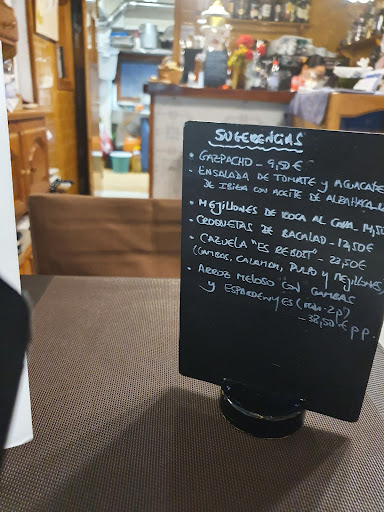 SUGERENCIAS
• GAZPACHO - 9,50 €
• ENSALADA DE TOMATE Y AGUACATE
DE IBIZA CON ACEITE DE ALBAHACA
• MEJILLONES DE ROCA AL
• CROQUETAS DE BACALAO - 12,50€
CAZUELA "ES REBOST" - 22,50€
(GAMBAS, CALAMAR, PULPO Y MEJILLONES)
• ARROZ MELOSO CON GAMBAS
Y ESPARDENYES (MIN. 2P)
- 38,50 € p.p.